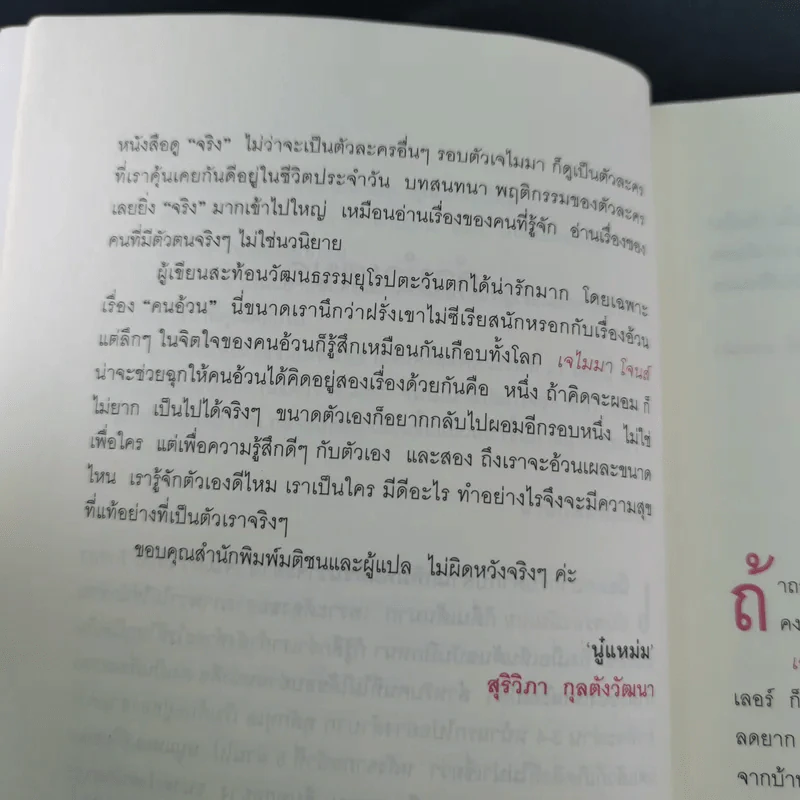 หนังสือดู “จริง” ไม่ว่าจะเป็นตัวละครอื่นๆ รอบตัวเจไมมา ก็ดูเป็นตัวละคร
ที่เราคุ้นเคยกันดีอยู่ในชีวิตประจำวัน บทสนทนา พฤติกรรมของตัวละคร
เลยยิ่ง “จริง” มากเข้าไปใหญ่ เหมือนอ่านเรื่องของคนที่รู้จัก อ่านเรื่องของ
คนที่มีตัวตนจริงๆ ไม่ใช่นวนิยาย
ผู้เขียนสะท้อนวัฒนธรรมยุโรปตะวันตกได้น่ารักมาก โดยเฉพาะ
เรื่อง “คนอ้วน” นี่ขนาดเรานึกว่าฝรั่งเขาไม่ซีเรียสนักหรอกกับเรื่องอ้วน
แต่ลึกๆ ในจิตใจของคนอ้วนก็รู้สึกเหมือนกันเกือบทั้งโลก เจไมมา โจนส์
น่าจะช่วยฉุกให้คนอ้วนได้คิดอยู่สองเรื่องด้วยกันคือ หนึ่ง ถ้าคิดจะผอม ก็
ไม่ยาก เป็นไปได้จริงๆ ขนาดตัวเองก็อยากกลับไปผอมอีกรอบหนึ่ง ไม่ใช่
เพื่อใคร แต่เพื่อความรู้สึกดีๆ กับตัวเอง และสอง ถึงเราจะอ้วนเผละขนาด
ไหน เรารู้จักตัวเองดีไหม เราเป็นใคร มีดีอะไร ทำอย่างไรจึงจะมีความสุข
ที่แท้อย่างที่เป็นตัวเราจริงๆ
ขอบคุณสำนักพิมพ์มติชนและผู้แปล ไม่ผิดหวังจริงๆ ค่ะ
‘นู๋แหม่ม’
สุริวิภา กุลตังวัฒนา
ถ้
คง
เลอร์ ก็
ลดยาก
จากบ้าน